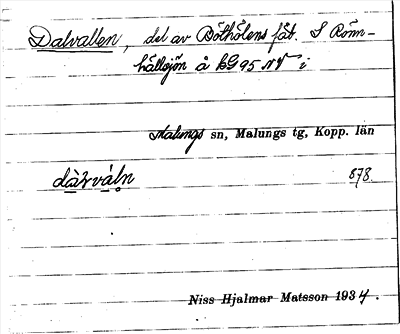 Dalvallen, del av Böthölens fåb. S Rönn-
hållsjön å bG 95 NV i
Malungs sn, Malungs tg, Kopp. län
dàlváln 878
Niss Hjalmar Matsson 1934.